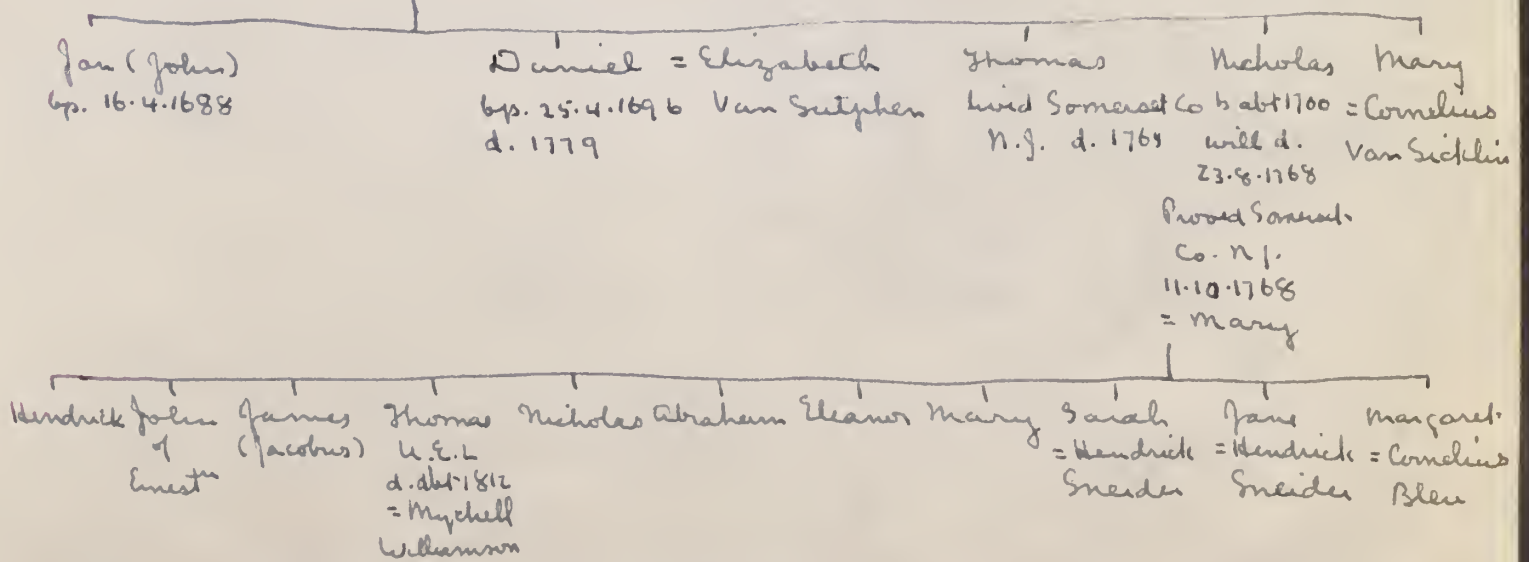 Jan (John)
bp. 16.4.1688
Daniel = Elizabeth
bp. 25.4.1696 Van Sutphen
d. 1779
Thomas
lived Somerset Co
N.J. d. 1765
Nicholas
b abt 1700
will d.
23.8.1768
Proved Somerset
Co. N J.
11.10.1768
= Mary
Mary
= Cornelius
Van Sicklin
Hendrick
John
of
Ernest
James
(Jacobus)
Thomas
U.E.L
d. abt 1812
= Mychell
Williamson
Nicholas
Abraham
Eleanor
Mary
Sarah
= Hendrick
Sneider
Jane
= Hendrick
Sneider
Margaret
= Cornelius
Bleu